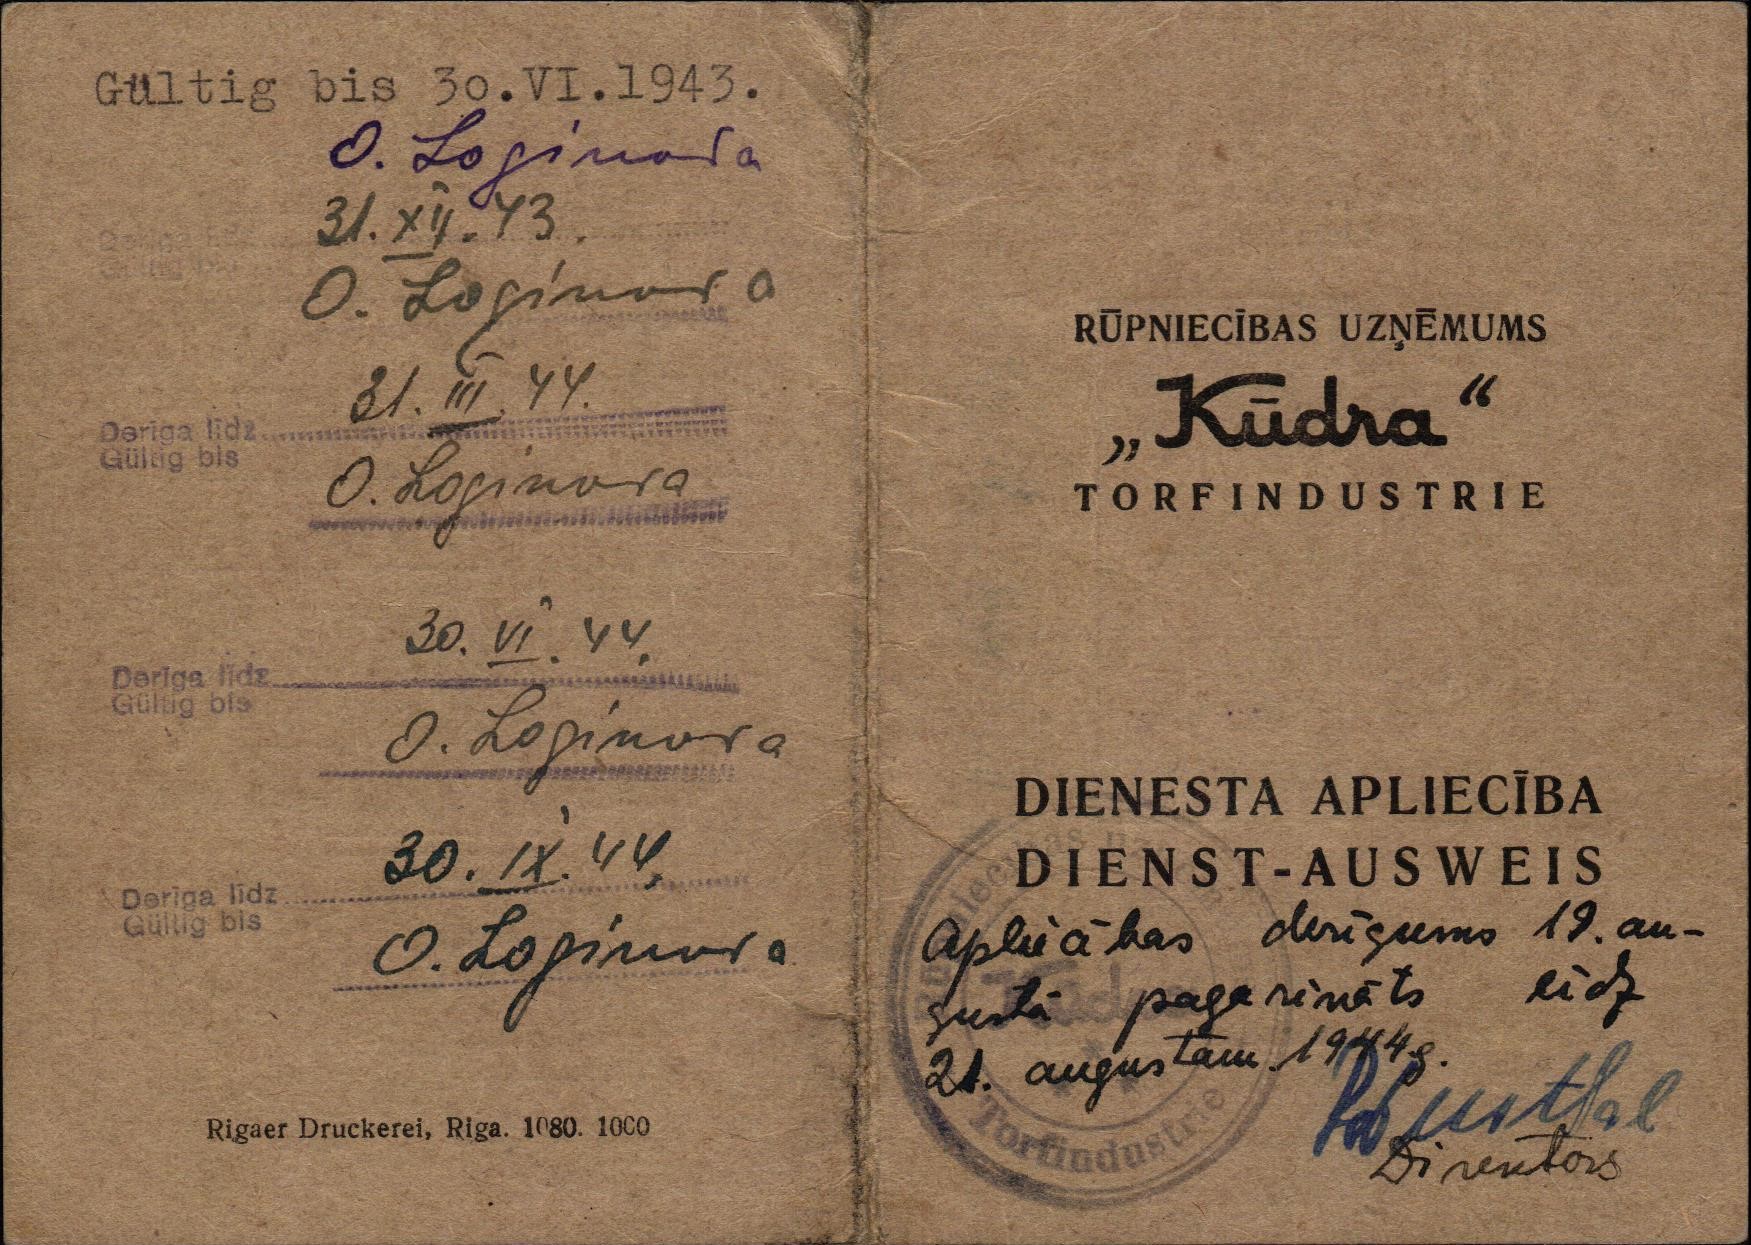 Gültig bis 30.VI.1943.
O. Loginova
31.XII.43.
Derīga līdz
Gültig bis
O. Loginova
31.III.44.
Derīga līdz
Gültig bis
O. Loginova
30.VI.44.
Derīga līdz
Gültig bis
O. Loginova
30.IX.44.
Derīga līdz
Gültig bis
O. Loginova
Rigaer Druckerei, Riga. 1080. 1000
RŪPNIECĪBAS UZŅĒMUMS
„Kūdra“
TORFINDUSTRIE
DIENESTA APLIECĪBA
DIENST-AUSWEIS
Apliecības derīgums 19. au-
gustā pagarināts līdz
21. augustam 1944 g.
Direktors
Rūpniecības
Kūdra
Torfindustrie